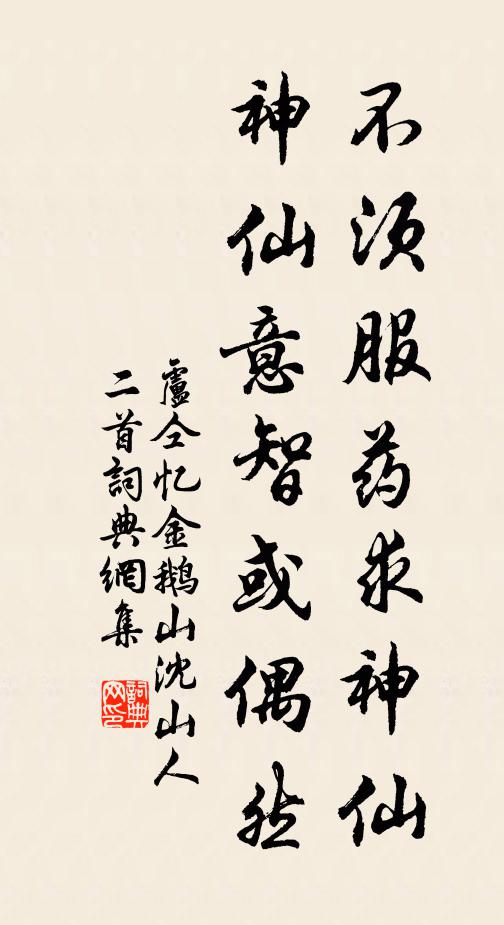 不须服药求神仙
神仙意智或偶然
盧仝忆金鹅山沈山人
二首詞典網集
詞典网印